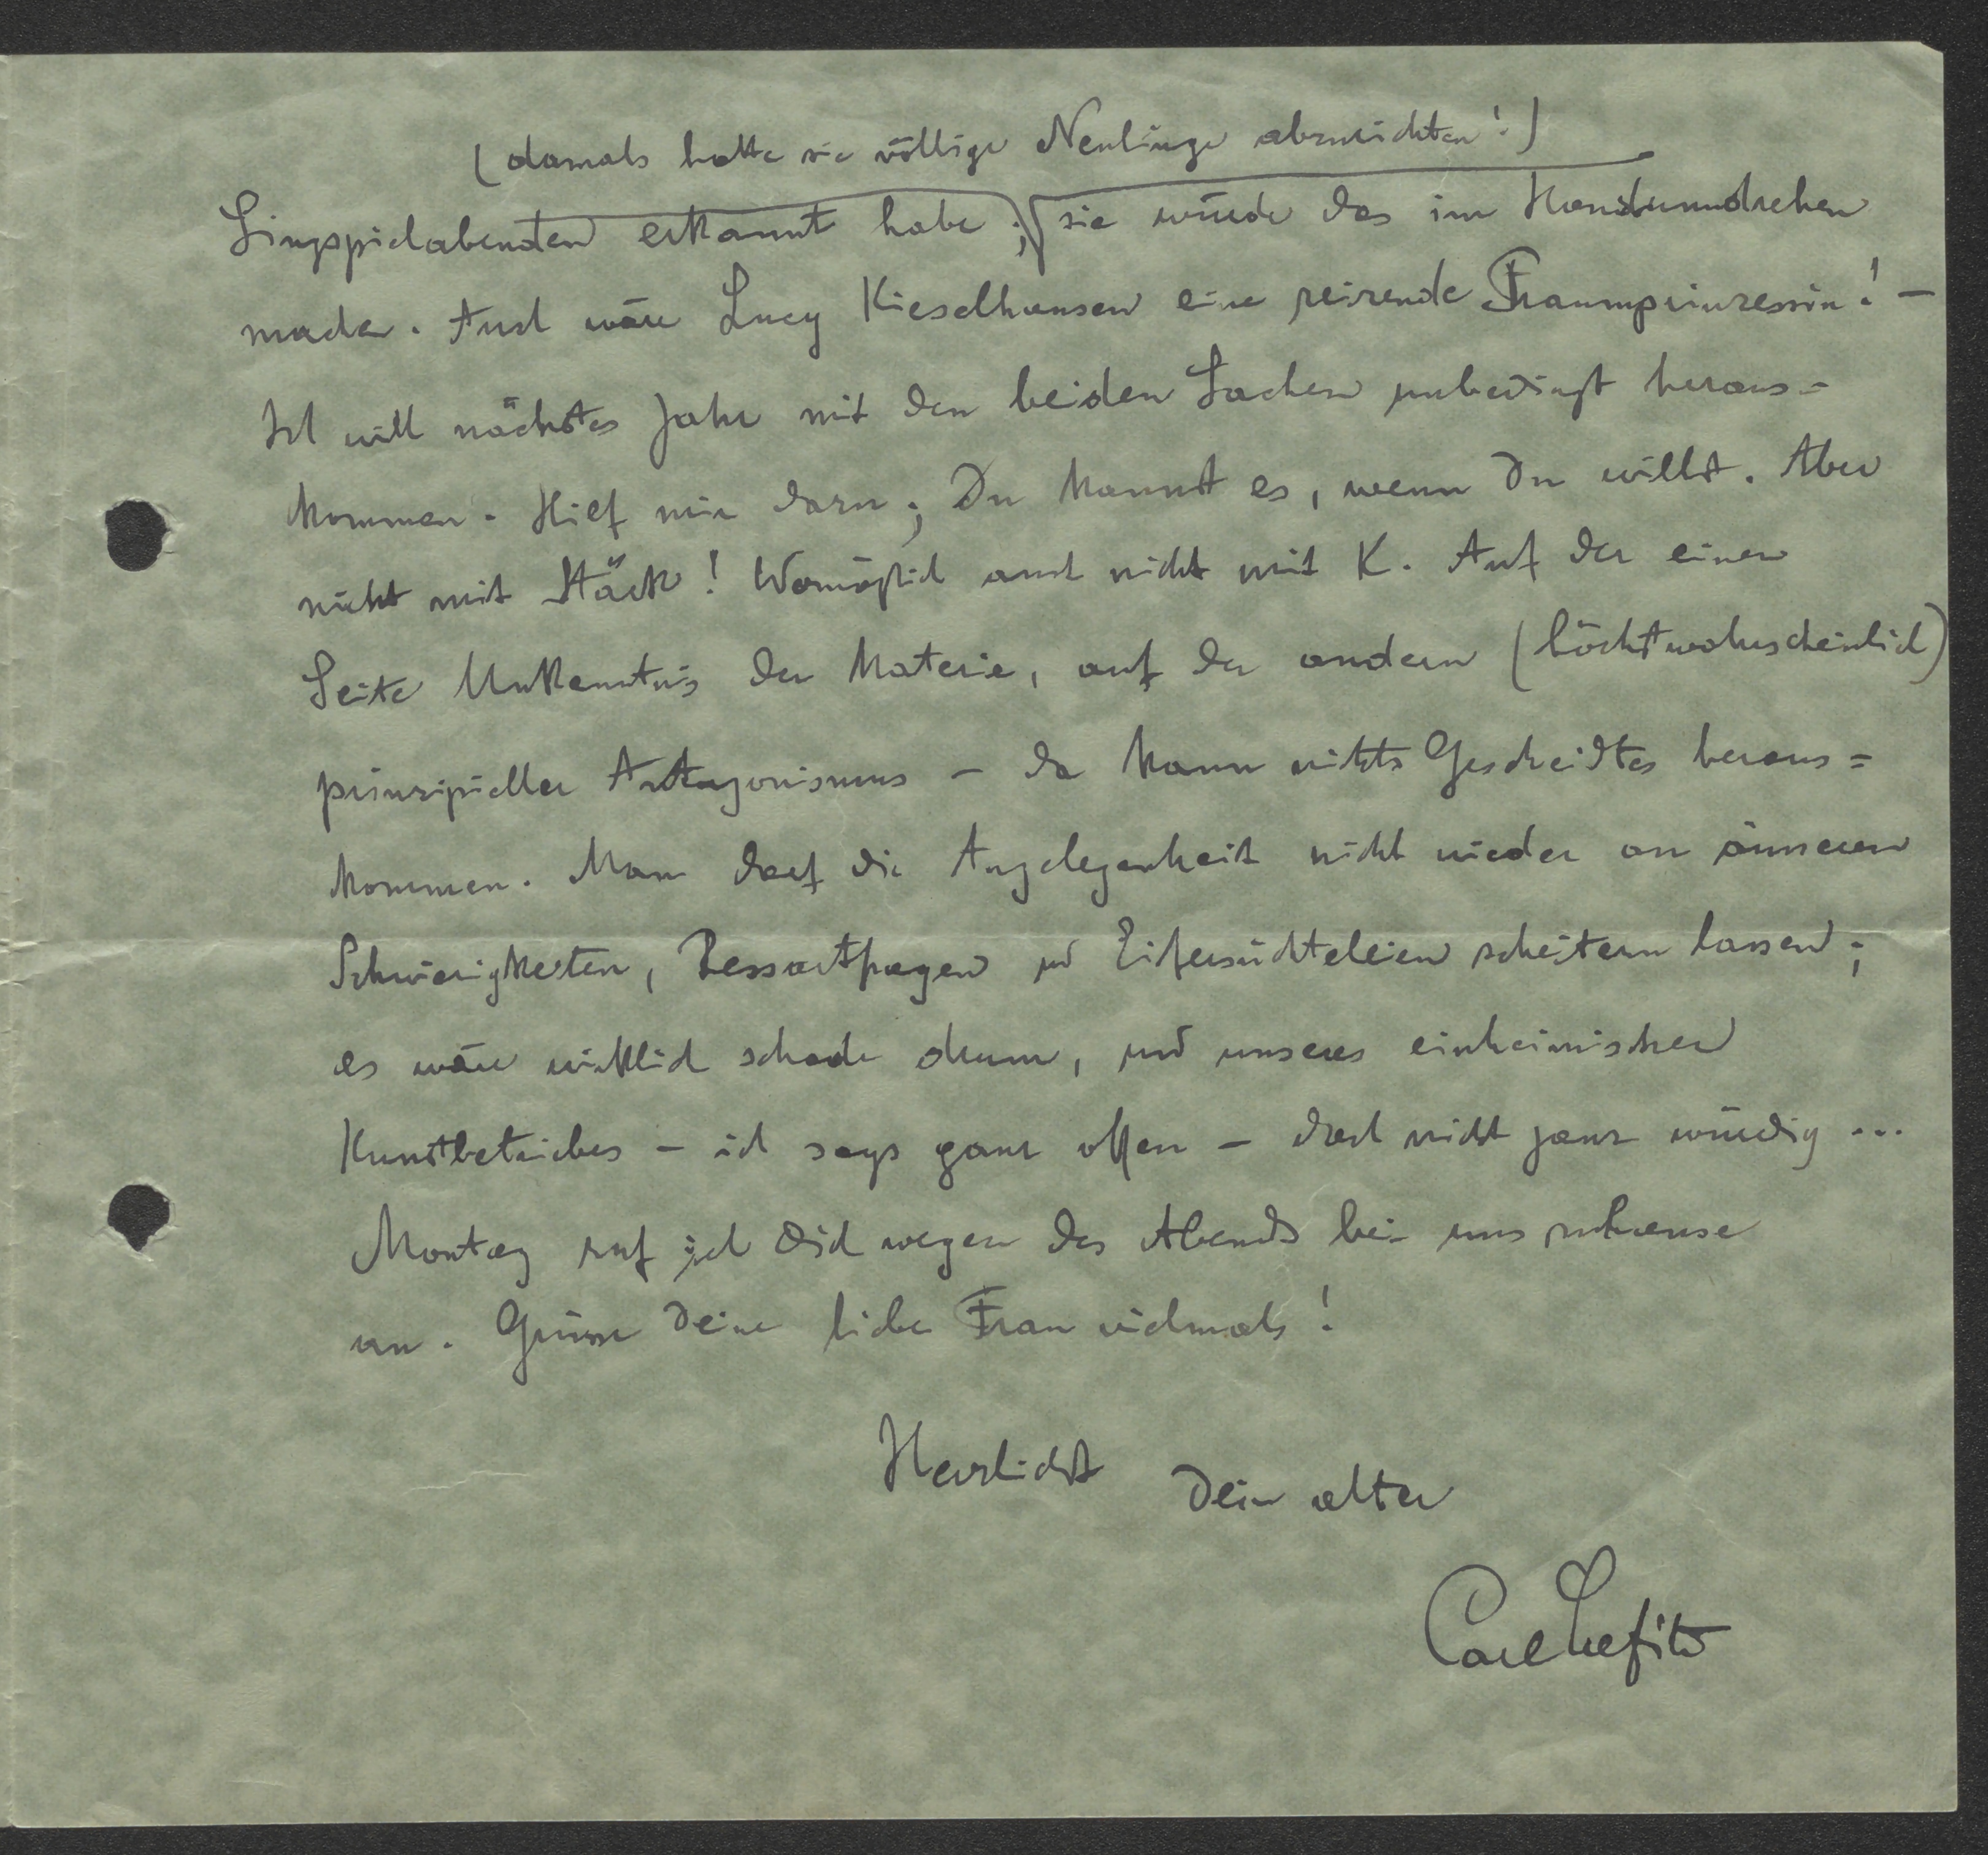 (damals hatte sie völlige Neulinge abzurichten!)
Singspielabenden erkannt habe; sie würde das im Handumdrehen
machen. Auch wäre Lucy Kieselhausen eine reizende Traumprinzessin! –
Ich will nächstes Jahr mit den beiden Sachen unbedingt heraus=
kommen. Hilf mir dazu; Du kannst es, wenn Du willst. Aber
nicht mit Stäck! Womöglich auch nicht mit K. Auf der einen
Seite Unkenntnis der Materie, auf der andern (höchstwahrscheinlich)
prinzipieller Antagonismus – da kann nichts Gescheidtes heraus=
kommen. Man darf die Angelegenheit nicht wieder an inneren
Schwierigkeiten, Ressortfragen und Eifersüchteleien scheitern lassen;
es wäre wirklich schade drum, und unseres einheimischen
Kunstbetriebes – ich sags ganz offen – doch nicht ganz würdig ...
Montag ruf ich Dich wegen des Abends bei uns zuhause
an. Grüsse Deine liebe Frau vielmals!
Herzlichst Dein alter
Carl